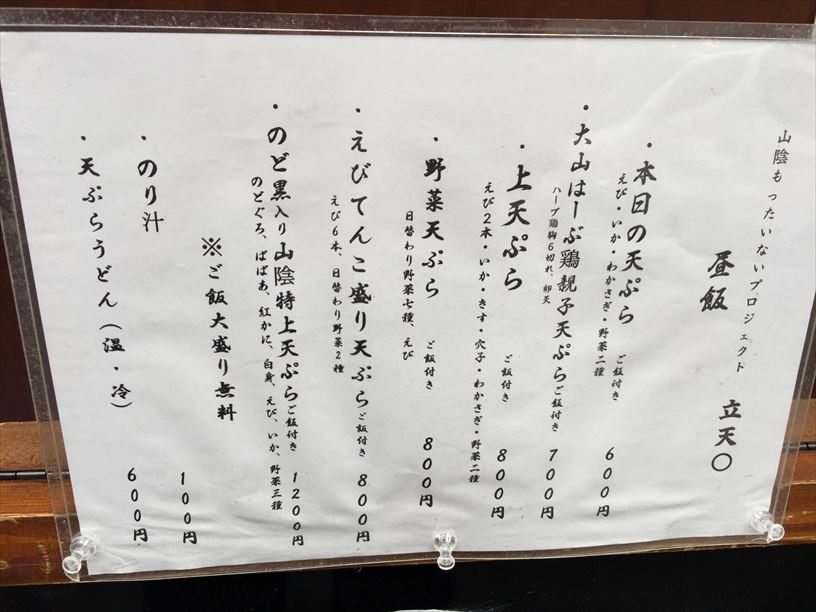 山陰もったいないプロジェクト
昼飯　立天〇
・本日の天ぷら　ご飯付き　600円
えび・いか・わかさぎ・野菜二種
・大山はーぶ鶏親子天ぷらご飯付き　700円
ハーブ鶏胸6切れ、卵天
・上天ぷら　ご飯付き　800円
えび2本・いか・きす・穴子・わかさぎ・野菜二種
・野菜天ぷら　ご飯付き　800円
日替わり野菜七種、えび
・えびてんこ盛り天ぷらご飯付き　800円
えび6本、日替わり野菜2種
・のど黒入り山陰特上天ぷらご飯付き　1200円
のどぐろ、ばばあ、紅かに、白身、えび、いか、野菜三種
※ご飯大盛り無料
・のり汁　100円
・天ぷらうどん（温・冷）　600円